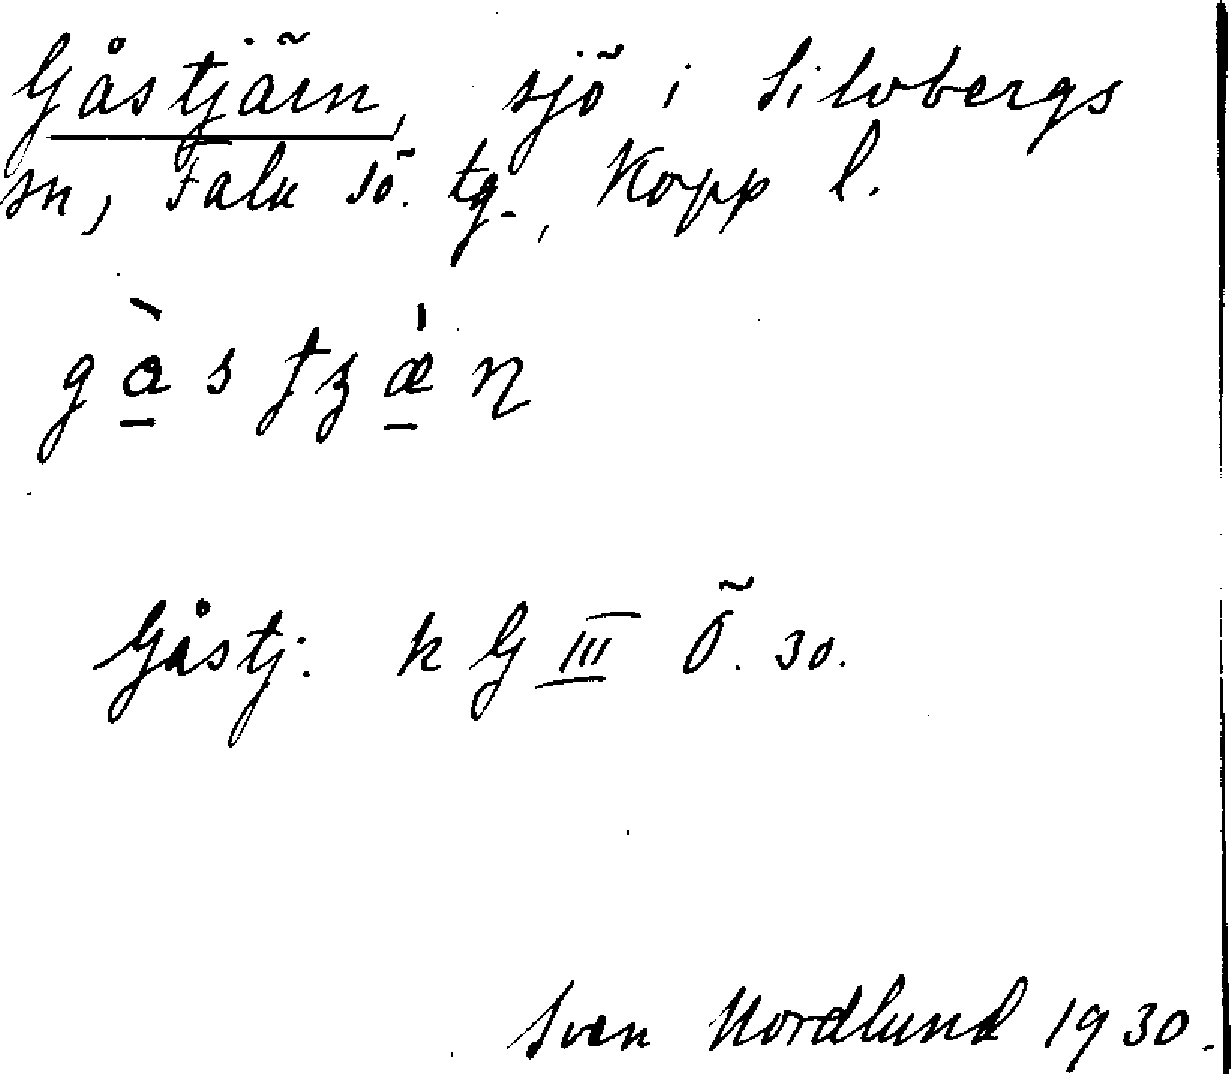 Gåstjärn, sjö i Silvbergs
sn, Falu sö. tg., Kopp l.
gàstzǽn
Gåstj: k G III Ö. 30.
Sven Nordlund 1930.